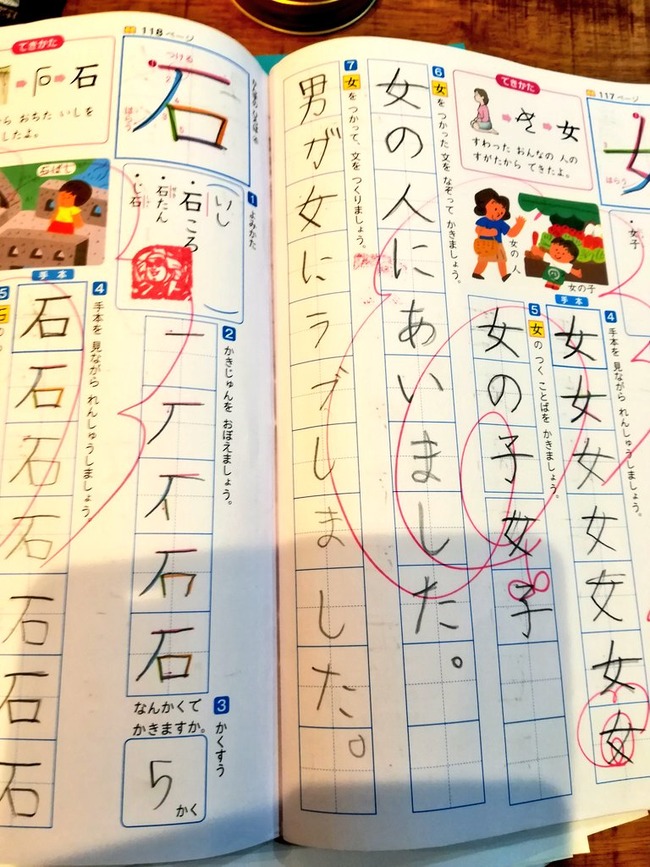 117ページ
できかた
すわった おんなの 人の
すがたから できたよ。
女
はらう
・女子
女の人
女の子
手本
4 手本を 見ながら れんしゅうしましょう。
女
女
女
女
女
女
女
5 女の つく ことばを かきましょう。
女の子女子
6 女を つかった 文を なぞって かきましょう。
女の人にあいました。
7 女を つかって、文を つくりましょう。
男が女にラブしました。
118ページ
石
つける
はらう
1 よみかた
いし
・石ころ
・石たん
・じ石
2 かきじゅんを おぼえましょう。
石
3 かくすう
なんかくで
かきますか。
5かく
できかた
石
から おちた いしを
したよ。
石ばし
手本
4 手本を 見ながら れんしゅうしましょう。
石
石
石
石
石
石
石
5 石の